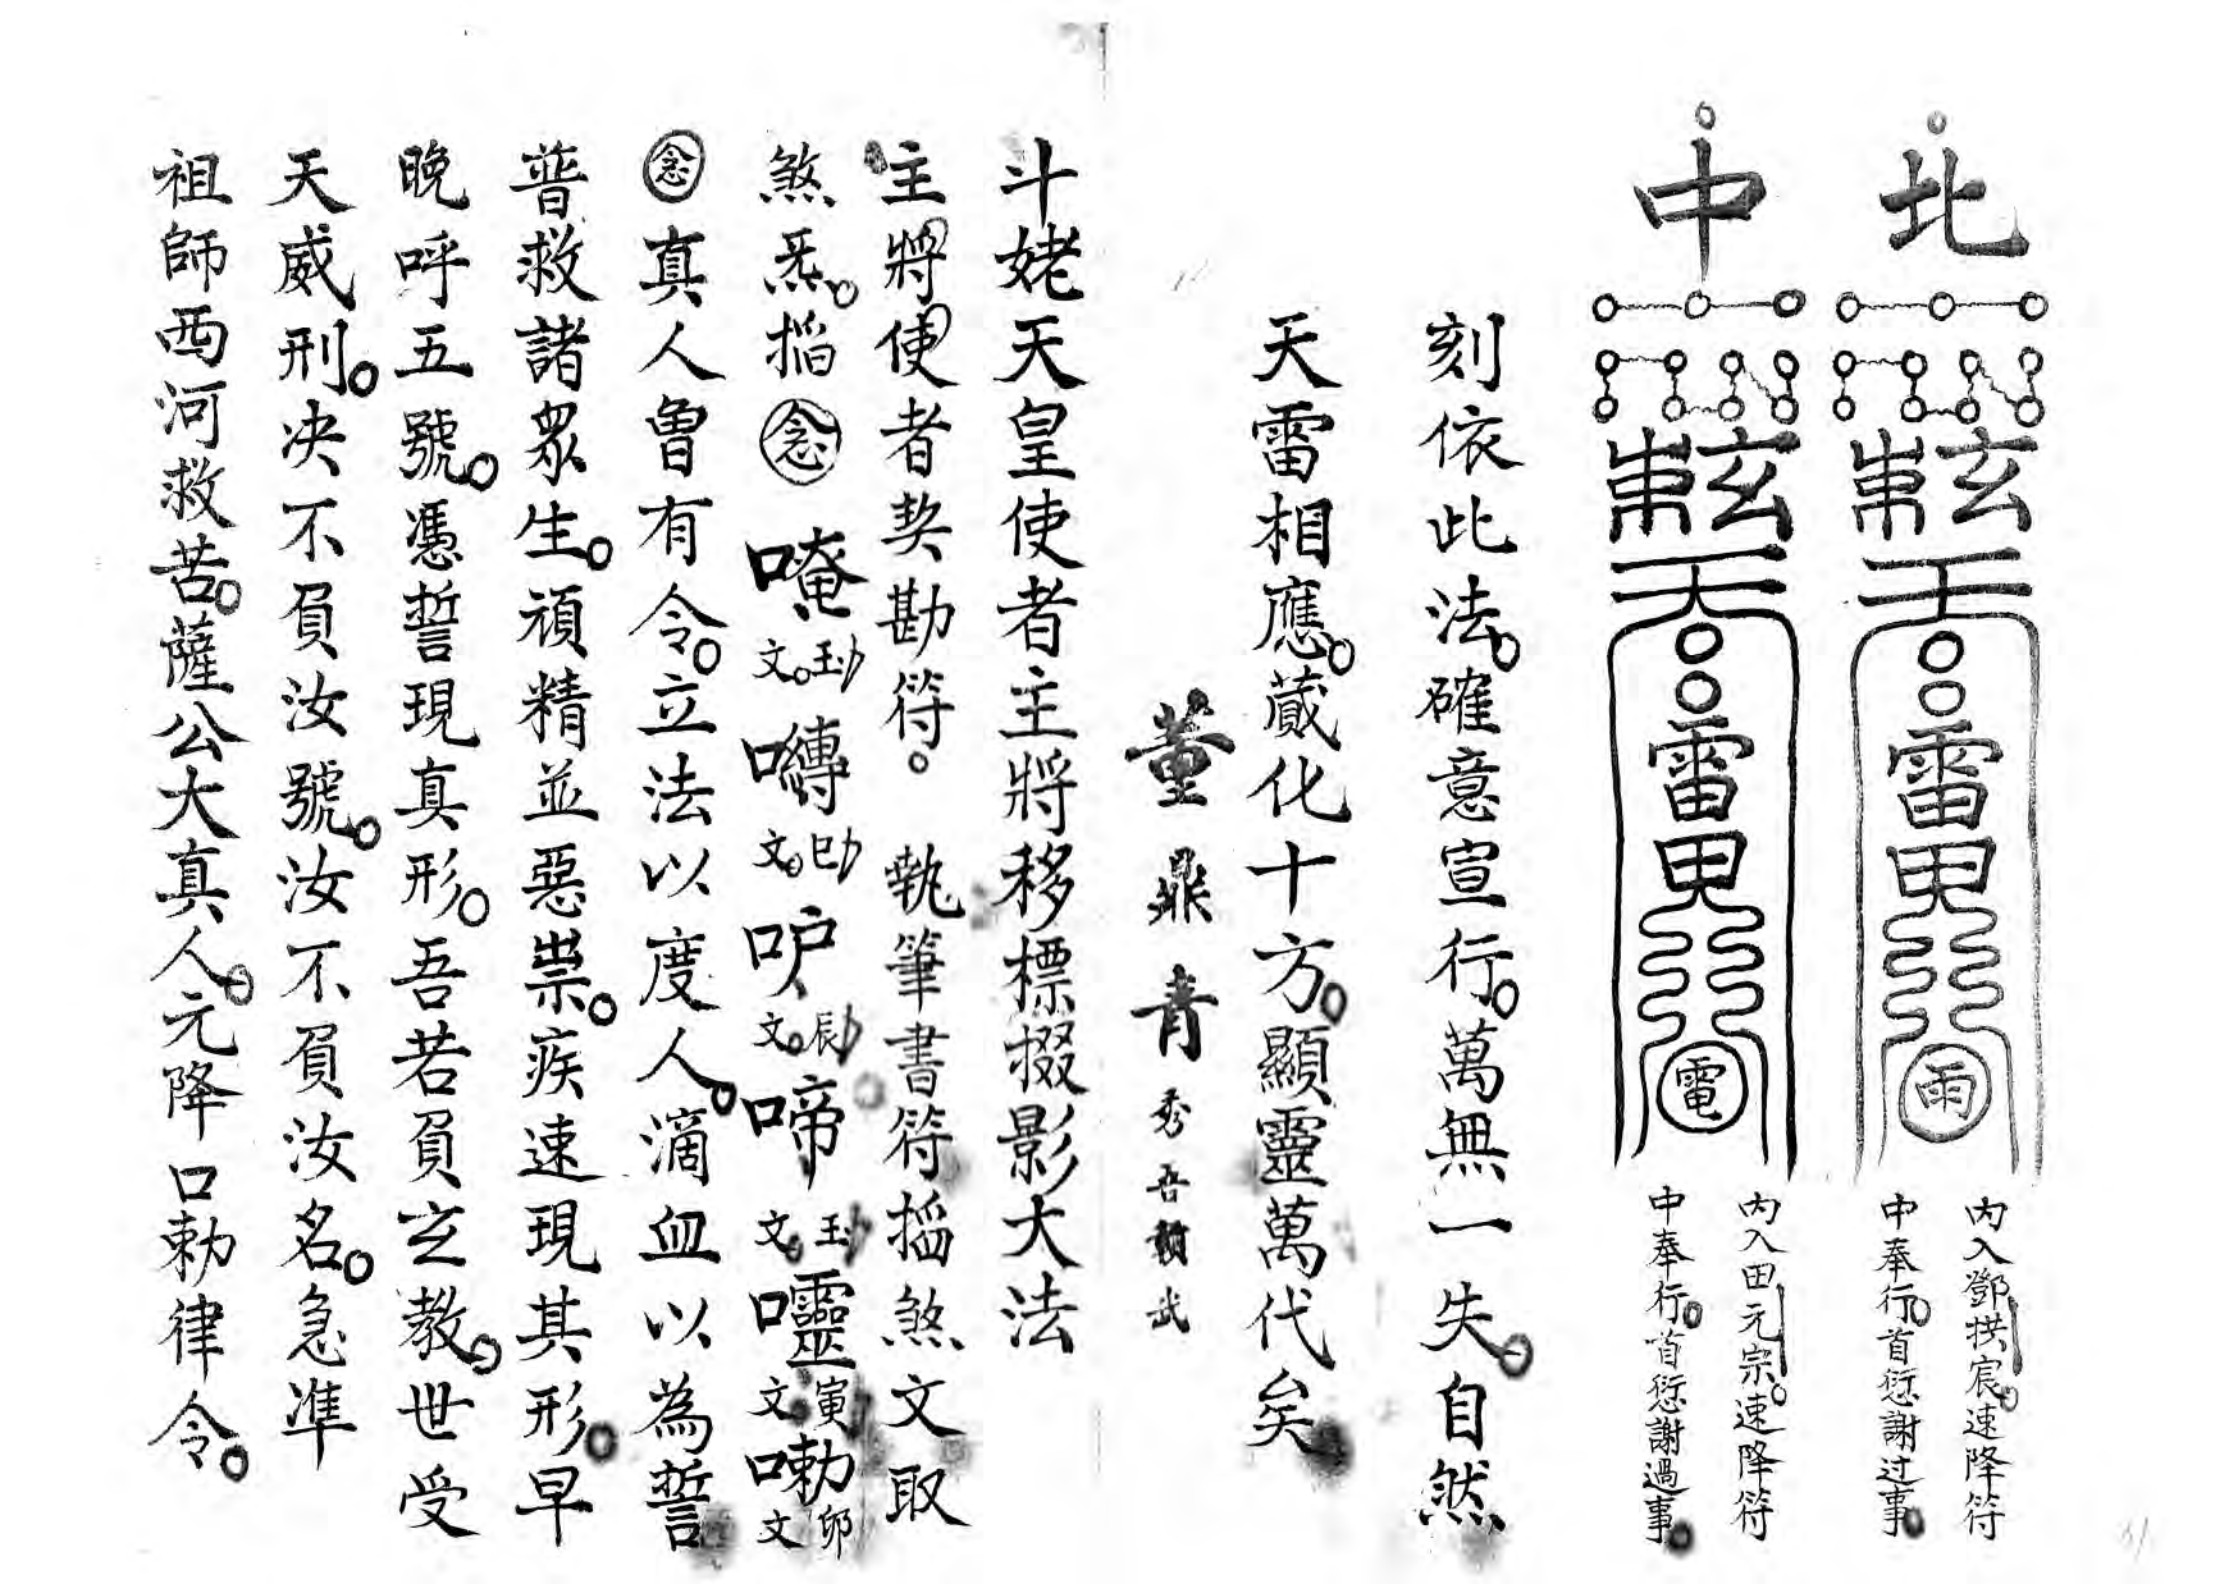 北
玄
雷
雨
內入鄧拱宸。速降符
中奉行。首愆謝过事。
中
玄
雷
電
內入田元宗。速降符
中奉行。首愆謝過事。
刻依此法。確意宣行。萬無一失。自然
天雷相應。蕆化十方。顯靈萬代矣
董鼎青秀吾
武
斗姥天皇使者主將移標掇影大法
主將使者契勘符。 執筆書符搯煞文取
煞炁。搯念 唵 玉文。囀 巳文。𠰷 辰文。啼 玉文。𡅖 寅文。嘞 卯文
念真人曾有令。立法以度人。滴血以為誓
普救諸眾生。頑精並惡祟。疾速現其形。早
晚呼五號。憑誓現真形。吾若負玄教。世受
天威刑。决不負汝號。汝不負汝名。急準
祖師西河救苦。薩公大真人。元降口勅律令。